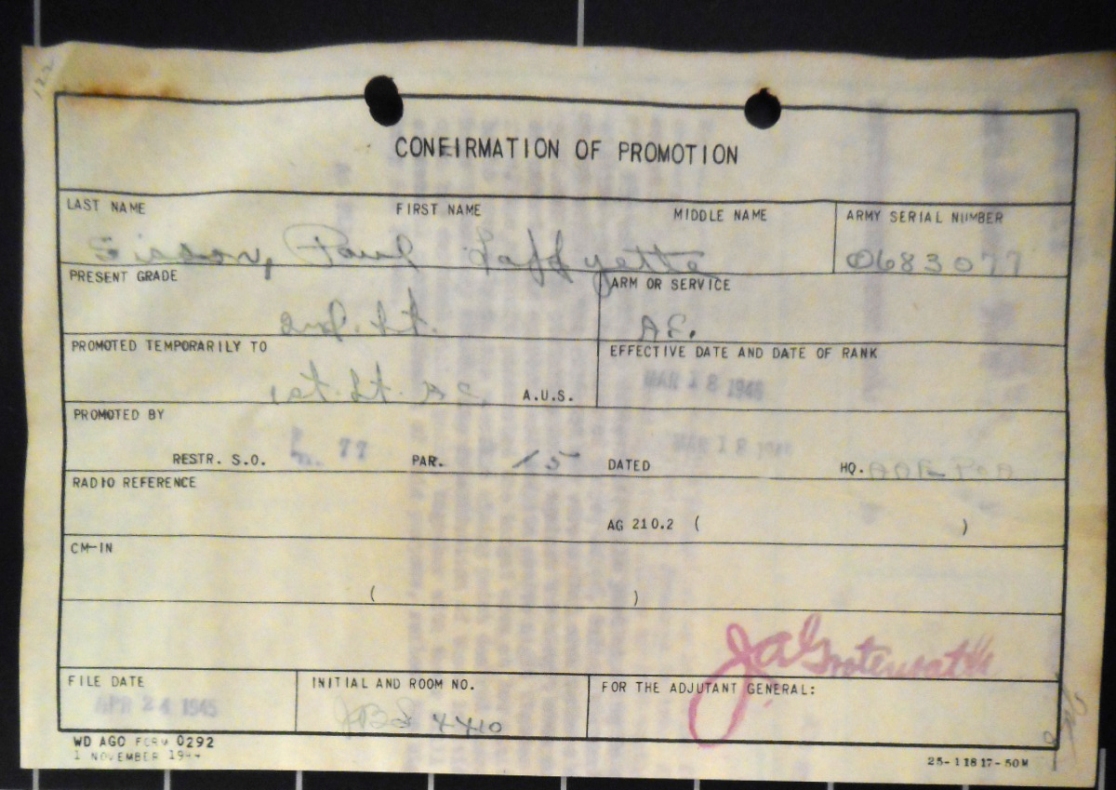 CONFIRMATION OF PROMOTION
LAST NAME FIRST NAME MIDDLE NAME ARMY SERIAL NUMBER
Sisson, Paul Laffyette 0683077
PRESENT GRADE ARM OR SERVICE
2nd. Lt. AC.
PROMOTED TEMPORARILY TO EFFECTIVE DATE AND DATE OF RANK
MAR 18 1945
1st. Lt. A.C. A.U.S.
PROMOTED BY
RESTR. S.O. 77 PAR. 15 DATED MAR 18 1945 HQ. POA
RADIO REFERENCE
AG 210.2 ( )
CM-IN
( )
FILE DATE INITIAL AND ROOM NO. FOR THE ADJUTANT GENERAL:
APR 24 1945 4410
WD AGO FORM 0292
1 NOVEMBER 1944 25-11817-50M